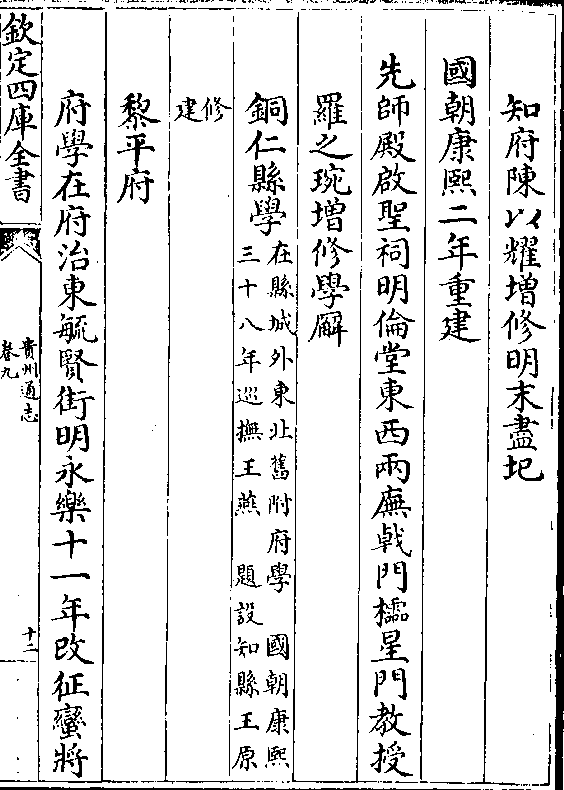 知府陳以耀增修明末盡圮
國朝康熙二年重建
先師殿啟聖祠明倫堂東西兩廡戟門櫺星門教授
羅之琬增修學廨
銅仁縣學在縣城外東北舊附府學 國朝康熙
三十八年巡撫王燕 題設知縣王原
修
建
黎平府
府學在府治東毓賢街明永樂十一年改征蠻將
欽定四庫全書
貴州通志
卷九
十二